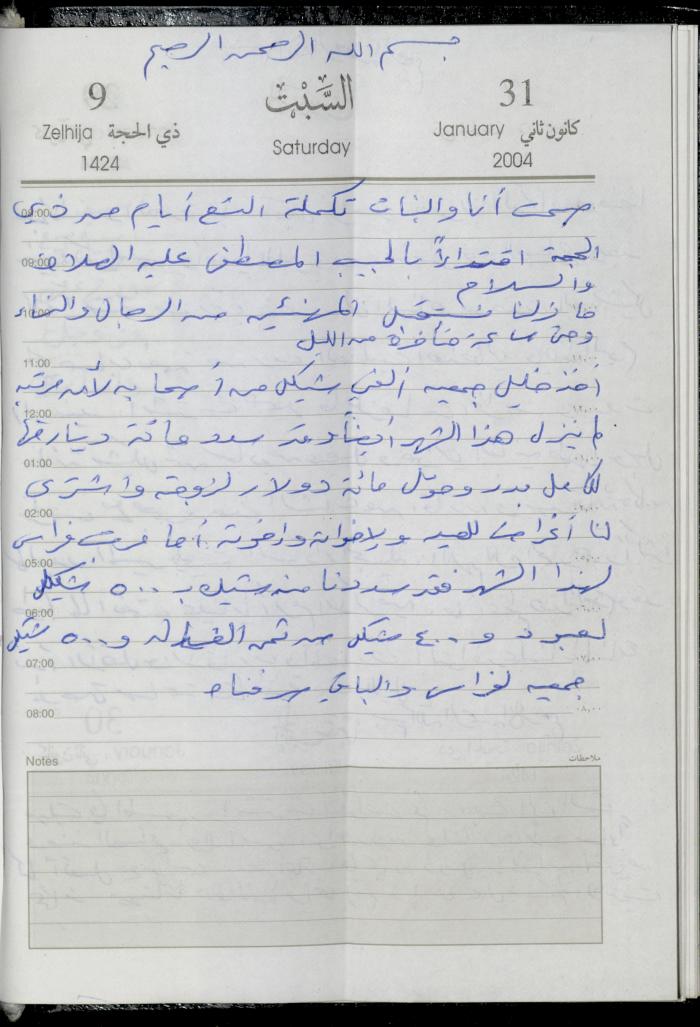 بسم الله الرحمن الرحيم
9 السَّبْت 31
Zelhija ذي الحجة Saturday January كانون ثاني
1424 2004
صمت أنا والبنات تكملة التسع أيام من ذي
09:00 الحجة اقتداءً بالحبيب المصطفى عليه الصلاة
والسلام
ما زلنا نستقبل المهنئين من الرجال والنساء
وحتى ساعة متأخرة من الليل
11:00
أخذ خليل جمعيه ألفي شيكل من أصحابه لأن مرتبه
12:00
لم ينزل هذا الشهر أيضاً وقد سدد مائة دينار
01:00
لكامل بدر وحوّل مائة دولار لزوجته واشترى
02:00
لنا أغراض للعيد ولإخوانه وأخوته أما مرتب فراس
05:00
لهذا الشهر فقد سددنا منه شيك ب ٥٠٠ شيكل
06:00
لعبود و ٤٠٠ شيكل من ثمن الغسالة و ٥٠٠ شيكل
07:00
جمعيه لفراس والباقي صرفناه
08:00
Notes ملاحظات